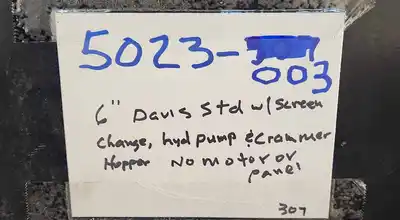 5023-
003
6" Davis Std w/ Screen
change, hyd pump & Crammer
Hopper No motor or
panel
307